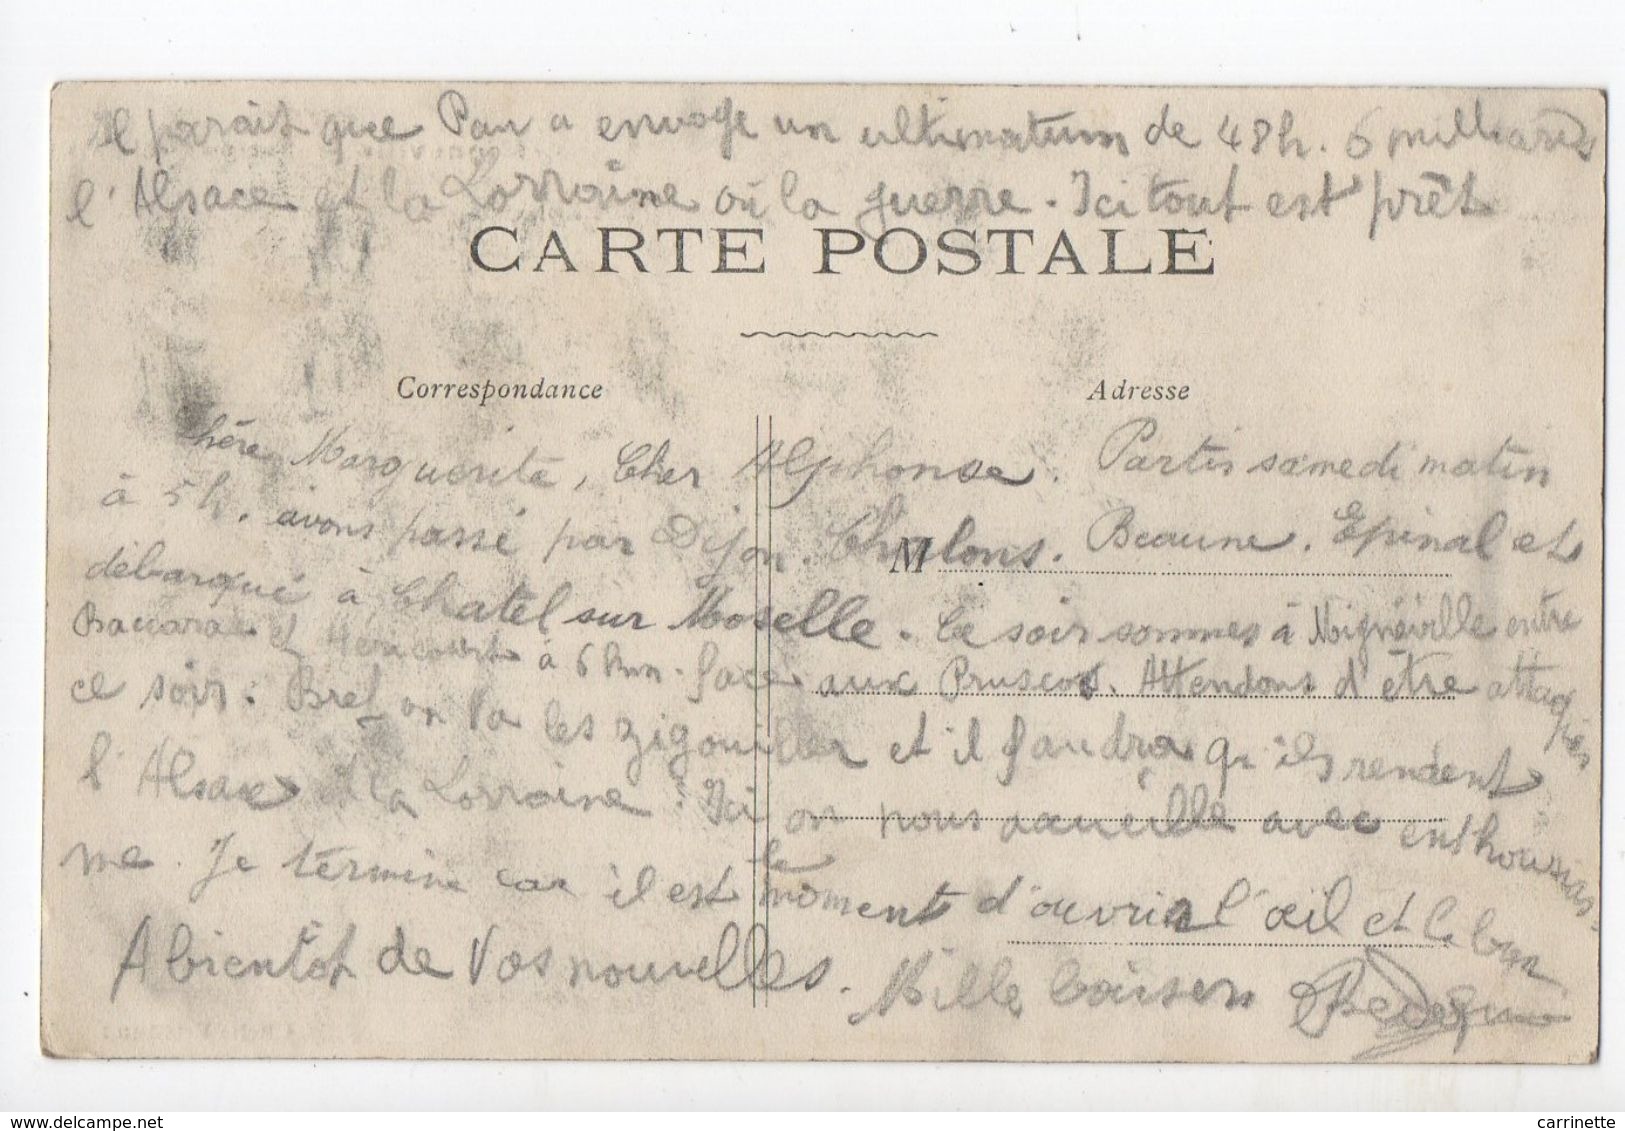 Il parait que Pau a envoyé un ultimatum de 48h. 6 milliards
l'Alsace et la Lorraine ou la guerre. Ici tout est prêt
CARTE POSTALE
Correspondance
Adresse
M
Chère Marguerite, Cher Alphonse. Partis samedi matin
à 5h. avons passé par Dijon. Chalons. Beaune. Epinal et
débarqué à Chatel sur Moselle. Ce soir sommes à Mignéville entre
Baccarat et Héricourt à 6 km. face aux Pruscos. Attendons d'être attaqués
ce soir. Bref on va les zigouiller et il faudra qu'ils rendent
l'Alsace et la Lorraine. Ici on nous accueille avec enthousias-
me. Je termine car il est le moment d'ouvrir l'œil et le bon
A bientôt de vos nouvelles. Mille baisers
carrinette